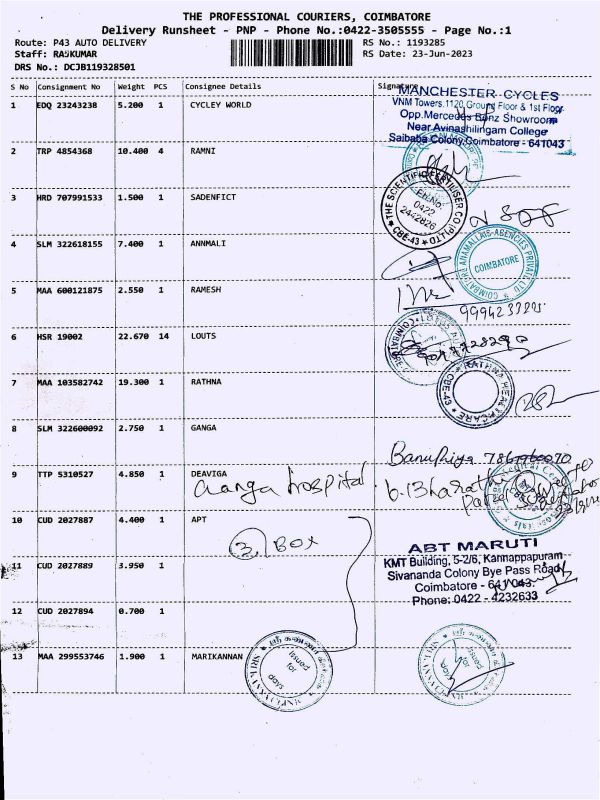 THE PROFESSIONAL COURIERS, COIMBATORE
Delivery Runsheet - PNP - Phone No.:0422-3505555 - Page No.:1
Route: P43 AUTO DELIVERY
RS No.: 1193285
Staff: RAJKUMAR
RS Date: 23-Jun-2023
DRS No.: DCJB119328501
S No Consignment No Weight PCS Consignee Details Signature
MANCHESTER CYCLES
VNM Towers.1120,Ground Floor & 1st Floor
Opp.Mercedes Benz Showroom
Near Avinashilingam College
Saibaba Colony,Coimbatore - 641043
1 EDQ 23243238 5.200 1 CYCLEY WORLD
2 TRP 4854368 10.400 4 RAMNI
3 HRD 707991533 1.500 1 SADENFICT
THE SCIENTIFIC FERTILISER CO (P) LTD
PH.No:
0422
2442826
CBE-43
4 SLM 322618155 7.400 1 ANNMALI
COIMBATORE ANAMALLAIS AGENCIES PRIVATE LTD
COIMBATORE
5 MAA 600121875 2.550 1 RAMESH
6 HSR 19002 22.670 14 LOUTS
7 MAA 103582742 19.300 1 RATHNA
RATHNA HEALTHCARE
CBE-43
8 SLM 322600092 2.750 1 GANGA
Banupriya
9 TTP 5310527 4.850 1 DEAVIGA
Ganga hospital
10 CUD 2027887 4.400 1 APT
3 Box
ABT MARUTI
KMT Building, 5-2/6, Kannappapuram
Sivananda Colony Bye Pass Road
Coimbatore - 641 043.
Phone: 0422 - 4232633
11 CUD 2027889 3.950 1
12 CUD 2027894 0.700 1
13 MAA 299553746 1.900 1 MARIKANNAN
Issued
for
days